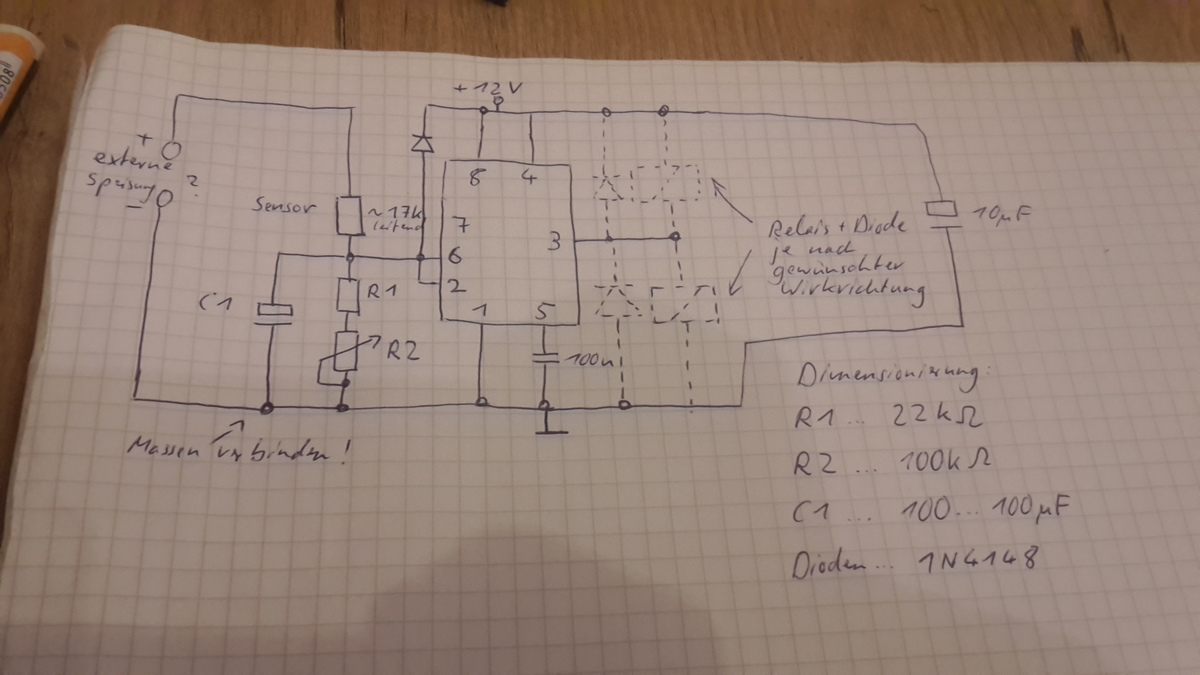 + 12V
+
externe
Speisung ?
-
Sensor
~17k
leitend
8 4
7
6
2
3
1 5
C1
R1
R2
100n
10µF
Relais + Diode
je nach
gewünschter
Wirkrichtung
Massen verbinden!
Dimensionierung:
R1 ... 22kΩ
R2 ... 100kΩ
C1 ... 100...100µF
Dioden... 1N4148